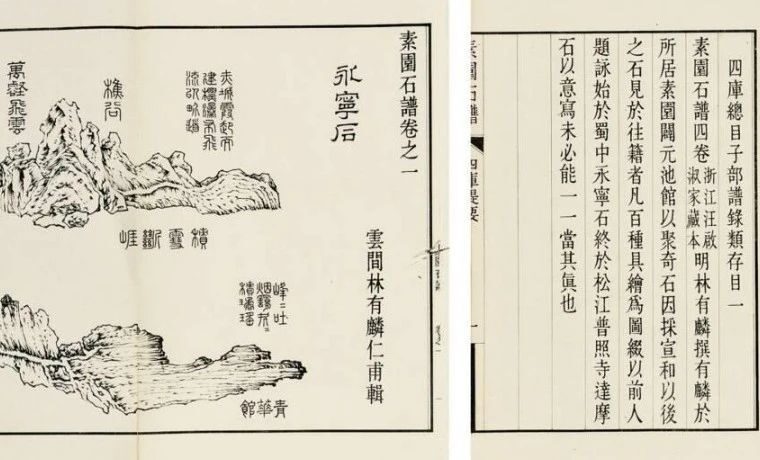 四庫總目子部譜錄類存目一
素園石譜四卷浙江汪啟淑家藏本明林有麟撰有麟於
所居素園闢元池館以聚奇石因採宣和以後
之石見於往籍者凡百種具繪爲圖綴以前人
題詠始於蜀中永寧石終於松江普照寺達摩
石以意寫未必能一一當其眞也
素園石譜
四庫提要
一
素園石譜卷之一
雲間林有麟仁甫輯
永寧石
赤城霞起而
建標瀑布飛
流以界道
樵谷
萬壑飛雲
積雪斷崖
峰二吐
青華館